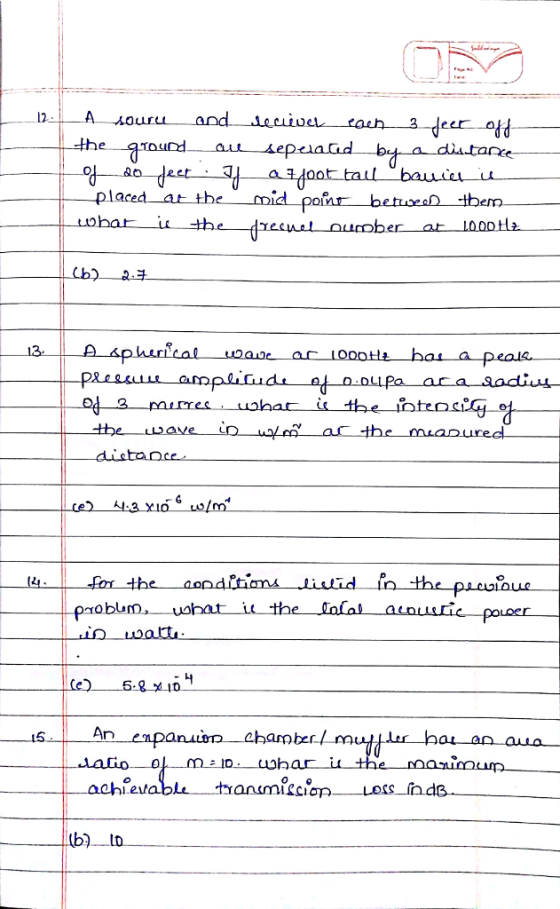 12. A source and reciever each 3 feet off
the ground are seperated by a distance
of 20 feet. If a 7foot tall barrier is
placed at the mid point between them
what is the fresnel number at 1000Hz
(b) 2.7
13. A spherical wave at 1000Hz has a peak
pressure amplitude of 0.04Pa at a radius
of 3 metres. what is the intensity of
the wave in w/m² at the measured
distance.
(e) 4.3 x10⁻⁶ w/m²
14. for the conditions listed in the previous
problem, what is the total acoustic power
in watts.
(c) 5.8 x 10⁻⁴
15. An expansion chamber/ muffler has an area
ratio of m=10. what is the maximum
achievable transmission Loss in dB.
(b) 10